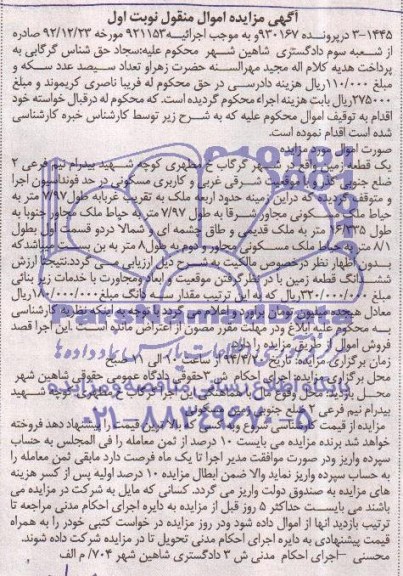 آگهی مزایده اموال منقول نوبت اول
۳-۱۴۴۵ درپرونده ۹۳۰۱۶۷و به موجب اجرائیه۹۲۱۱۵۳ مورخه ۹۲/۱۲/۲۳ صادره
از شعبه سوم دادگستری شاهین شهر محکوم علیه:سجاد حق شناس گرگابی به
پرداخت هدیه کلام اله مجید مهرالسنه حضرت زهراو تعداد سیصد عدد سکه و
مبلغ ۱۱۰/۰۰۰ریال هزینه دادرسی در حق محکوم له فریبا ناصری کریموند و مبلغ
۲۷۵۰۰۰ریال بابت هزینه اجراء محکوم گردیده است. که محکوم له درقبال خواسته خود
اقدام به توقیف اموال محکوم علیه که به شرح زیر توسط کارشناس خبره کارشناسی
شده است اقدام نموده است.
صورت اموال مورد مزایده
یک قطعه زمین واقع در شهر گرگاب خ مطهری کوچه شهید بیدرام نیم فرعی ۲
ضلع جنوبی گذر و با موقعیت شرقی غربی و کاربری مسکونی در حد فونداسیون اجرا
و متوقف گردیده که دراین زمینه حدود اربعه ملک به تقریب غربابه طول ۷/۹۷ متر به
حیاط ملک مسکونی مجاور شرقا به طول ۷/۹۷ متر به حیاط ملک مجاور جنوبا به
متر به ملک قدیمی و طاق چشمه ای شمالا دردو قسمت اول بطول
۸/۱ متر به حیاط ملک مسکونی مجاور و دوم به طول ۸ متر به بن بست میباشدکه
بدون اظهار نظر درخصوص مالکیت به شرح ذیل ارزیابی می گردد.نتیجتا ارزش
ششدانگ قطعه زمین با در نظرگرفتن موقعیت و ابعاد ومجاورت با خدمات زیر بنائی
مبلغ ریال که به این ترتیب مقدار دانگ مبلغ ریال
معادل تومان برآورد و اعلام می گردد با توجه به اینکه نظریه کارشناسی
به محکوم علیه ابلاغ ودر مهلت مقرر مصون از اعتراض مانده است این اجرا قصد
فروش اموال از طریق مزایده را دارد.
زمان برگزاری مزایده: تاریخ از ساعت ۱۰ الی ۱۱ صبح
محل برگزاری مزایده: اجرای احکام ش ۳حقوقی دادگاه عمومی حقوقی شاهین شهر
محل بازدید: محل وقوع ملک با هماهنگی این اجرا گرگاب خ مطهری کوچه شهید
بیدرام نیم فرعی ۲ ضلع جنوبی زمین مسکونی
مزایده از قیمت کارشناسی شروع وبه کسی که بالاترین قیمت را پیشنهاد دهد فروخته
خواهد شد برنده مزایده می بایست ۱۰ درصد از ثمن معامله را فی المجلس به حساب
سپرده واریز ودر صورت موافقت مدیر اجرا تا یک ماه فرصت دارد مابقی ثمن معامله را
به حساب سپرده واریز نماید والا ضمن ابطال مزایده ۱۰ درصد اولیه پس از کسر هزینه
های مزایده به صندوق دولت واریز می گردد. کسانی که مایل به شرکت در مزایده می
باشند می بایست حداکثر ۵ روز قبل از مزایده به دایره اجرای احکام مدنی مراجعه تا
ترتیب بازدید انها از اموال داده شود ودر روز مزایده در خواست کتبی خود را به همراه
قیمت پیشنهادی به دایره اجرای احکام مدنی تحویل تا در مزایده شرکت داده شوند.
محسنی -اجرای احکام مدنی ش ۳ دادگستری شاهین شهر ۷۰۴/ م الف
پایگاه اطلاع رسانی مناقصه و مزایده